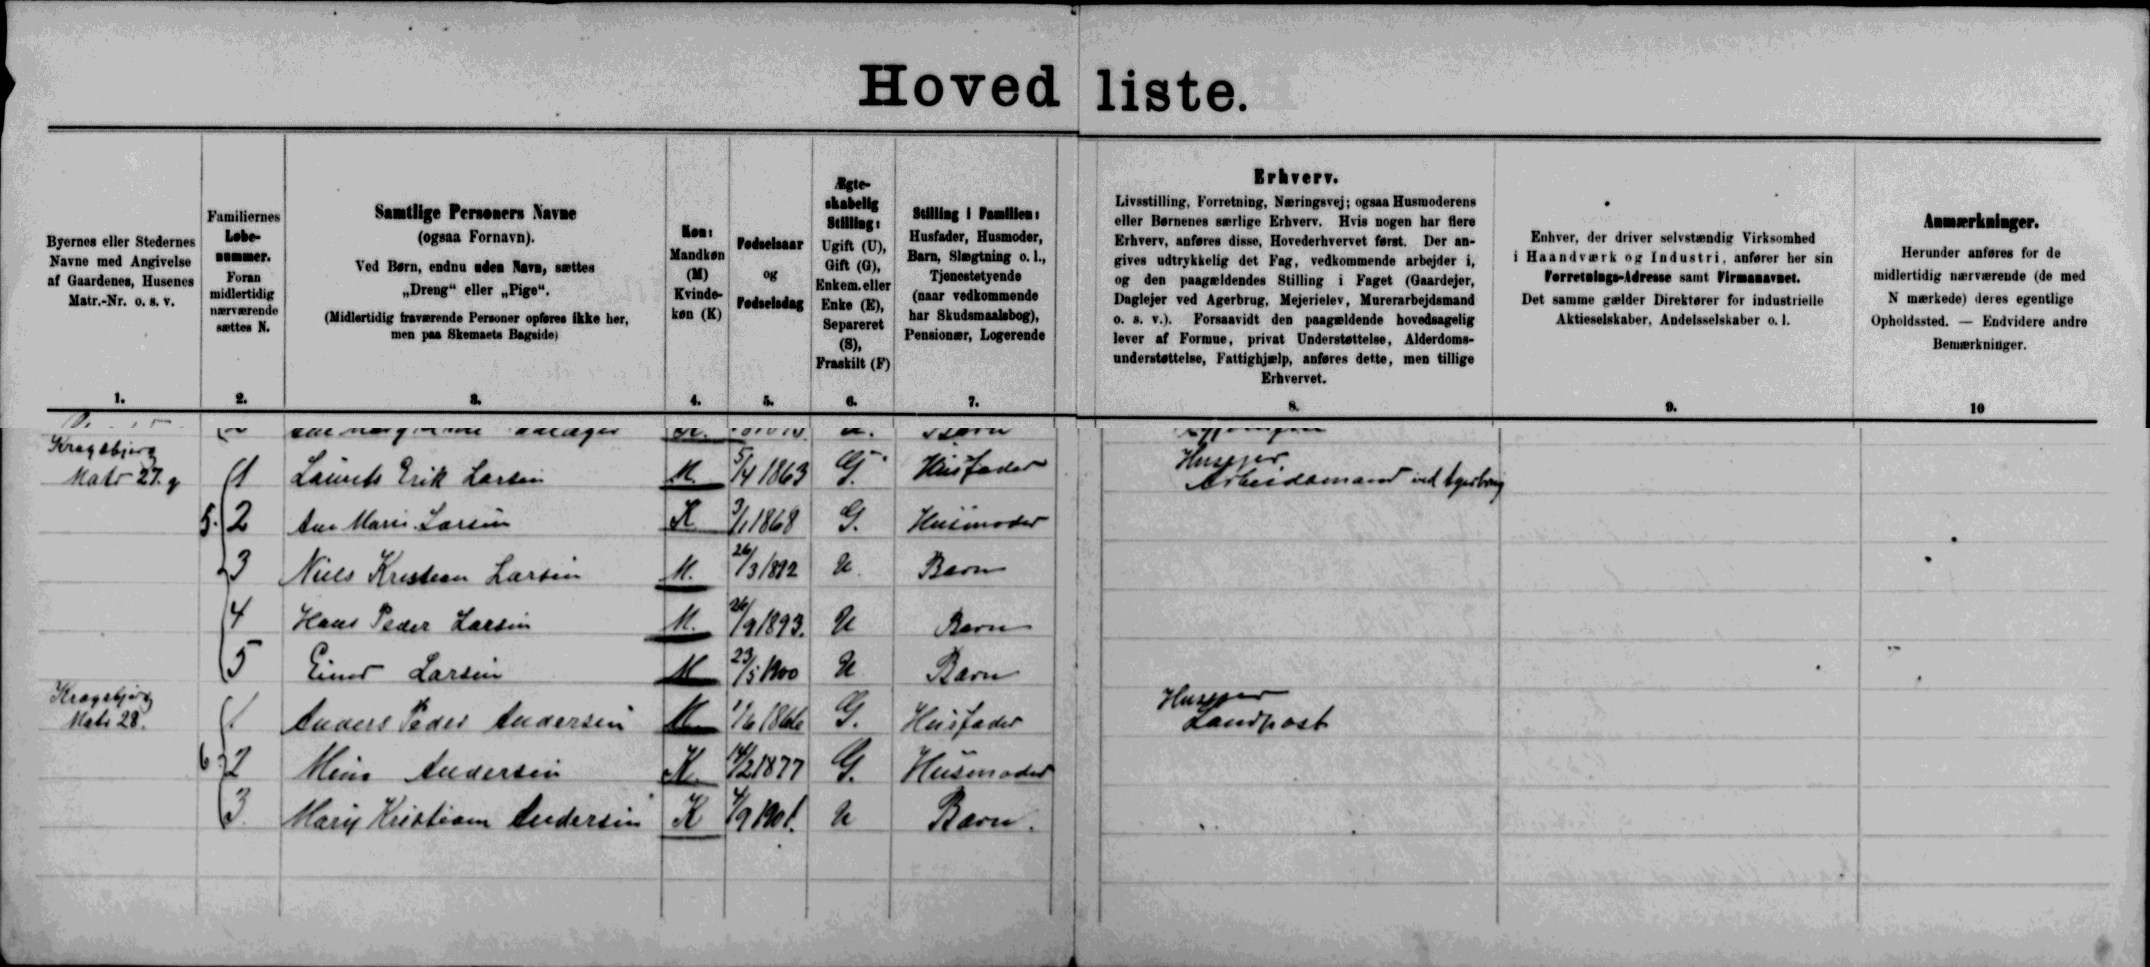 Hovedliste.
Byernes eller Stedernes
Navne med Angivelse
af Gaardenes, Husenes
Matr.-Nr. o. s. v.
1.
Familiernes
Løbe-
nummer.
Foran
midlertidig
nærværende
sættes N.
2.
Samtlige Personers Navne
(ogsaa Fornavn).
Ved Børn, endnu uden Navn, sættes
„Dreng“ eller „Pige“.
(Midlertidig fraværende Personer opføres ikke her,
men paa Skemaets Bagside)
3.
Køn:
Mandkøn
(M)
Kvinde-
køn (K)
4.
Fødselsaar
og
Fødselsdag
5.
Ægte-
skabelig
Stilling:
Ugift (U),
Gift (G),
Enkem. eller
Enke (E),
Separeret
(S),
Fraskilt (F)
6.
Stilling i Familien:
Husfader, Husmoder,
Barn, Slægtning o. l.,
Tjenestetyende
(naar vedkommende
har Skudsmaalsbog),
Pensionær, Logerende
7.
Erhverv.
Livsstilling, Forretning, Næringsvej; ogsaa Husmoderens
eller Børnenes særlige Erhverv. Hvis nogen har flere
Erhverv, anføres disse, Hovederhvervet først. Der an-
gives udtrykkelig det Fag, vedkommende arbejder i,
og den paagældendes Stilling i Faget (Gaardejer,
Daglejer ved Agerbrug, Mejerielev, Murerarbejdsmand
o. s. v.). Forsaavidt den paagældende hovedsagelig
lever af Formue, privat Understøttelse, Alderdoms-
understøttelse, Fattighjælp, anføres dette, men tillige
Erhvervet.
8.
Enhver, der driver selvstændig Virksomhed
i Haandværk og Industri, anfører her sin
Forretnings-Adresse samt Firmanavnet.
Det samme gælder Direktører for industrielle
Aktieselskaber, Andelsselskaber o. l.
9.
Anmærkninger.
Herunder anføres for de
midlertidig nærværende (de med
N mærkede) deres egentlige
Opholdssted. — Endvidere andre
Bemærkninger.
10
Kragsbjerg Husejer
Matr 27. g 1 Laurits Erik Larsen M. 5/4 1863 G. Husfader Arbeidsmand ved Agerbrug
5. 2 Ane Marie Larsen K 3/1 1868 G. Husmoder
3 Niels Kristian Larsen M. 26/3 1892 U Barn
4 Hans Peder Larsen M. 26/9 1893. U Barn
5 Einar Larsen M 23/5 1900 U Barn
Kragsbjerg Husejer
Matr 28. 1 Anders Peder Andersen M 1/6 1866 G. Husfader Landpost
6. 2 Mine Andersen K. 14/2 1877 G. Husmoder
3. Mary Kristiane Andersen K 4/9 1901. U Barn.